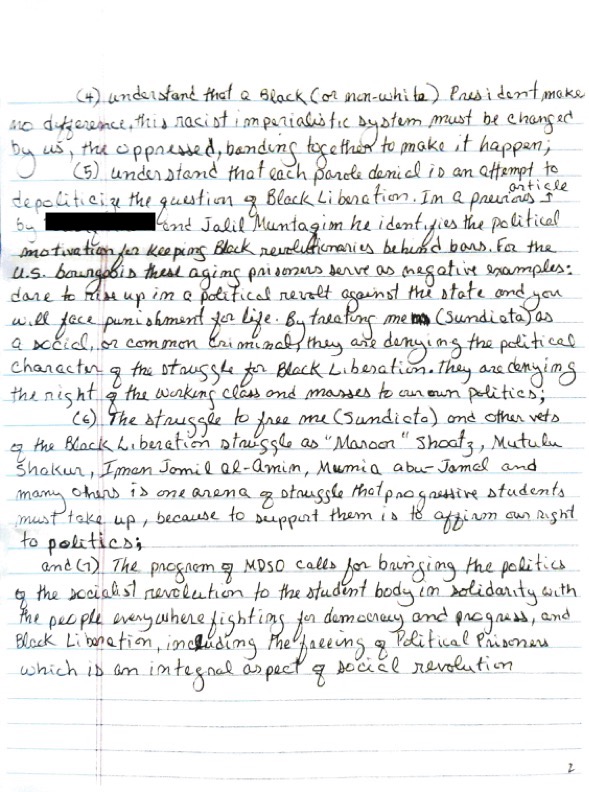 (4) understand that a Black (or non-white) President make
no difference, this racist imperialistic system must be changed
by us, the oppressed, banding together to make it happen;
(5) understand that each parole denial is an attempt to
depoliticize the question of Black Liberation. In a previous article
by and Jalil Muntagim he identifies the political
motivation for keeping Black revolutionaries behind bars. For the
U.S. bourgeois these aging prisoners serve as negative examples:
dare to rise up in a political revolt against the state and you
will face punishment for life. By treating me (Sundiata) as
a social, or common criminal, they are denying the political
character of the struggle for Black Liberation. They are denying
the right of the working class and masses to our own politics;
(6) The struggle to free me (Sundiata) and other vets
of the Black Liberation struggle as "Maroon" Shoatz, Mutulu
Shakur, Iman Jamil al-Amin, Mumia abu-Jamal and
many others is one arena of struggle that progressive students
must take up, because to support them is to affirm our right
to politics;
and (7) The program of MDSO calls for bringing the politics
of the socialist revolution to the student body in solidarity with
the people everywhere fighting for democracy and progress, and
Black Liberation, including the freeing of Political Prisoners
which is an integral aspect of social revolution
2